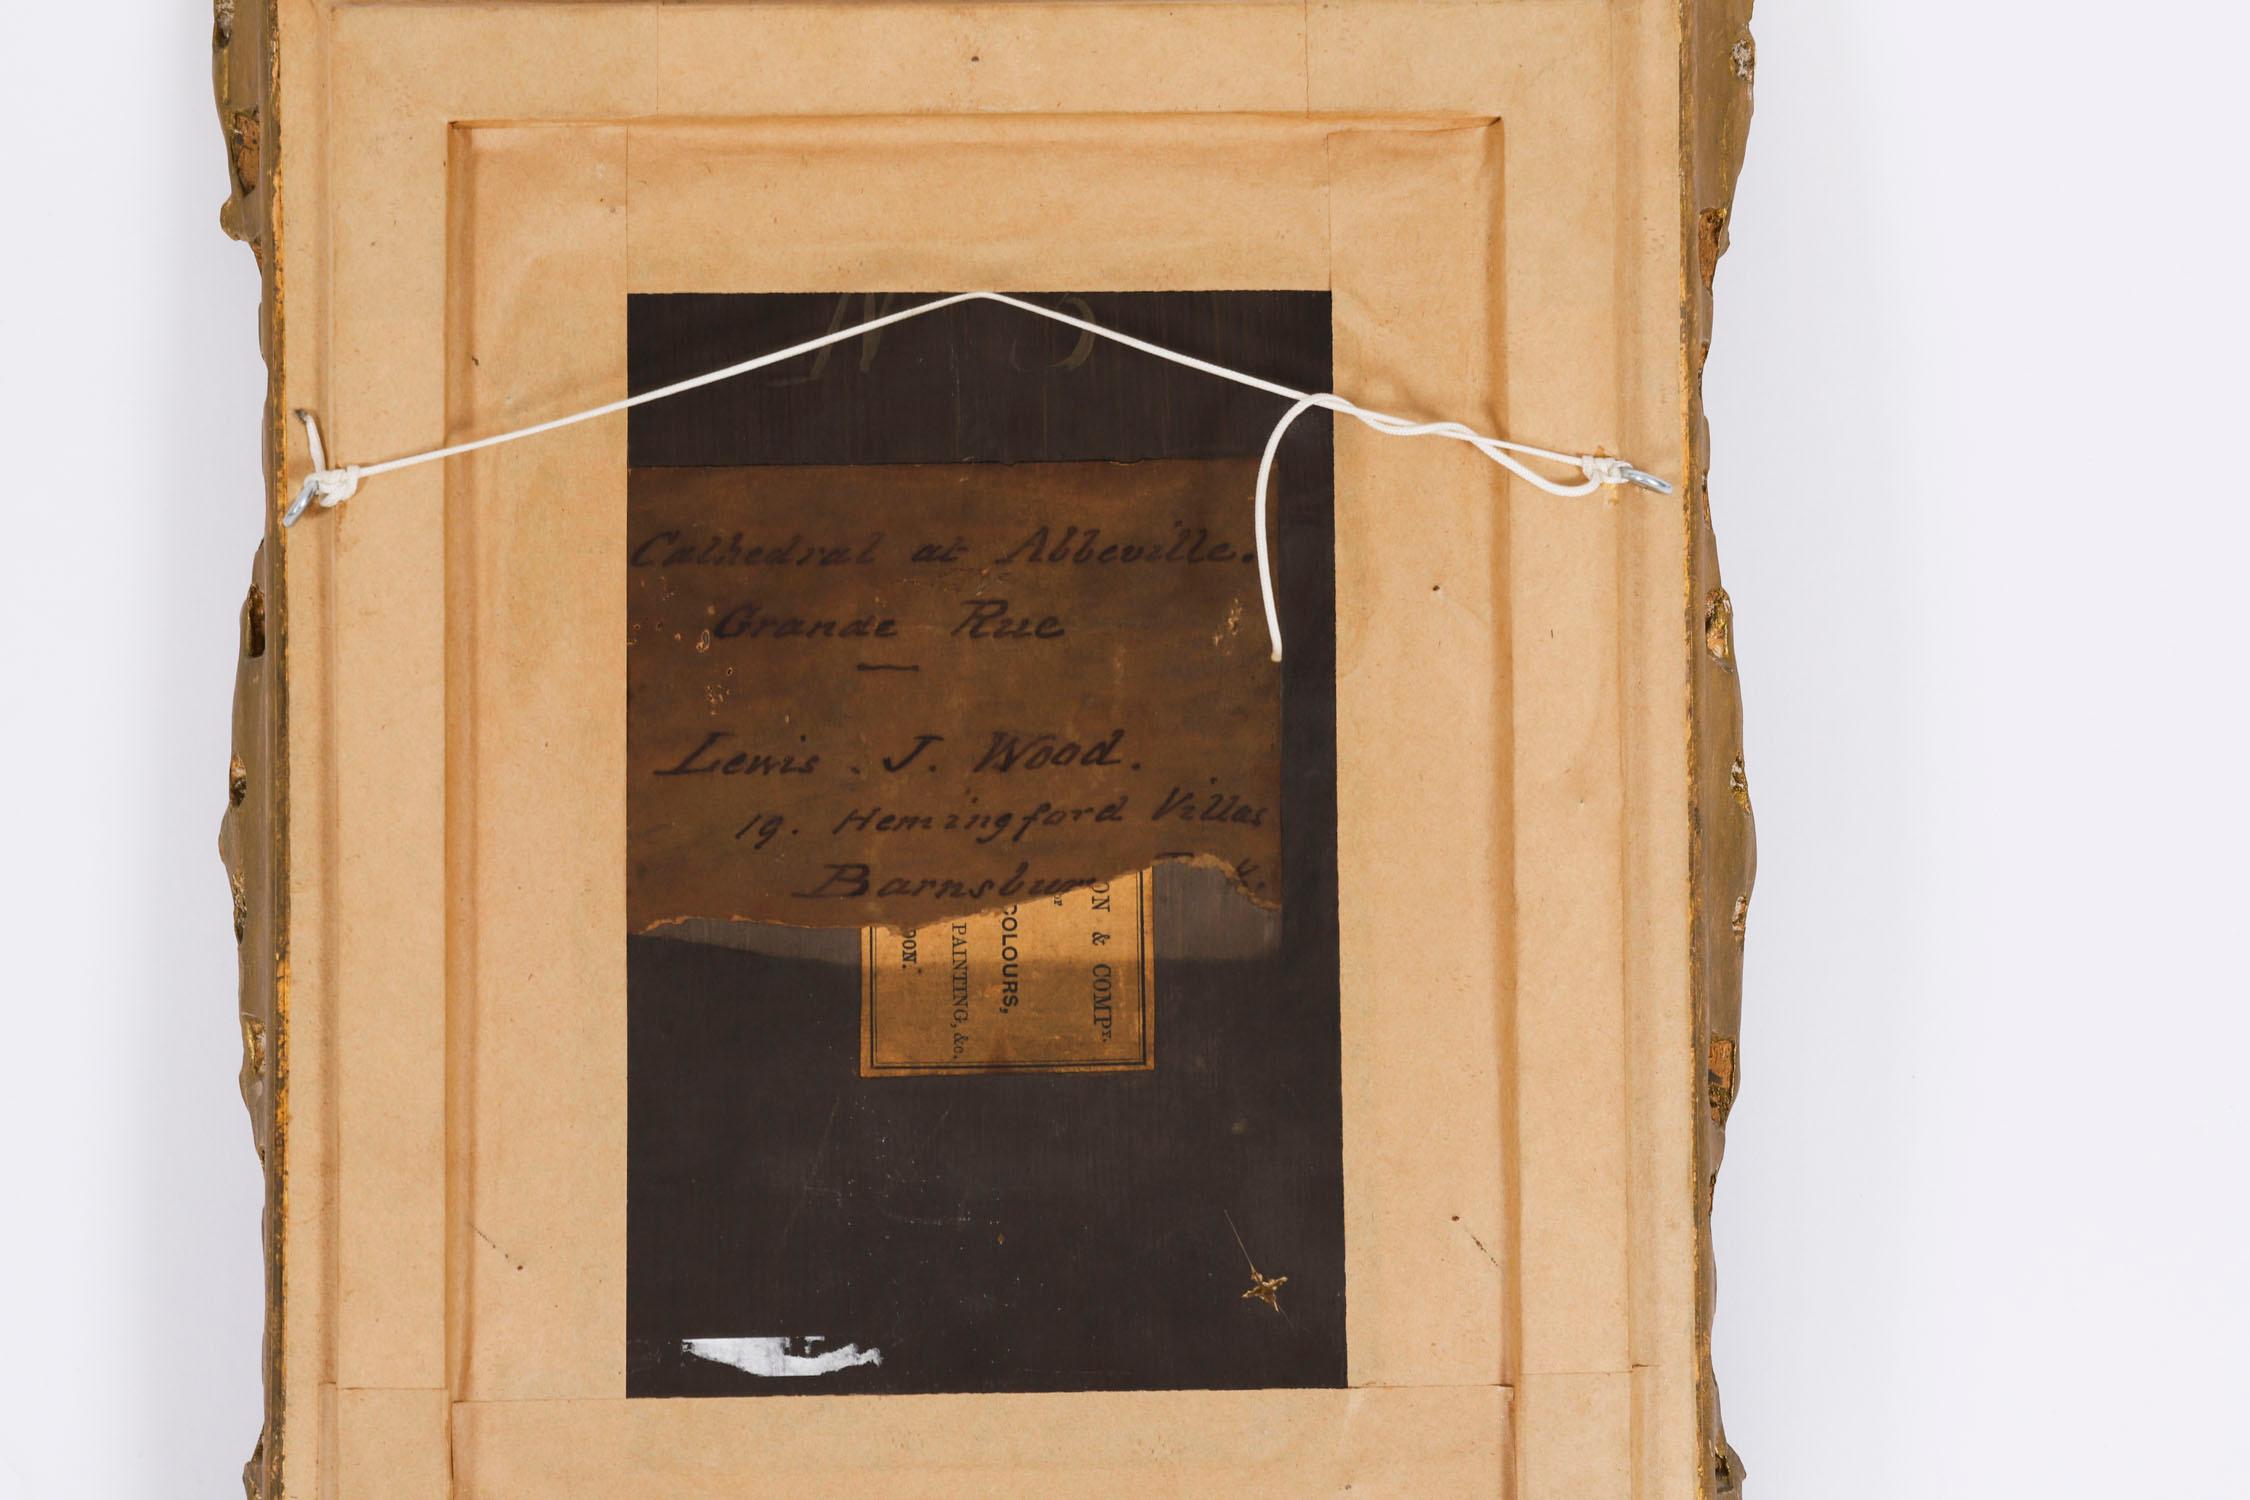 N 5
Cathedral at Abbeville.
Grande Rue
Lewis . J. Wood.
19. Hemingford Villas
Barnsbury
ON & COMPY.
OF
COLOURS,
PAINTING, &c.
DON.